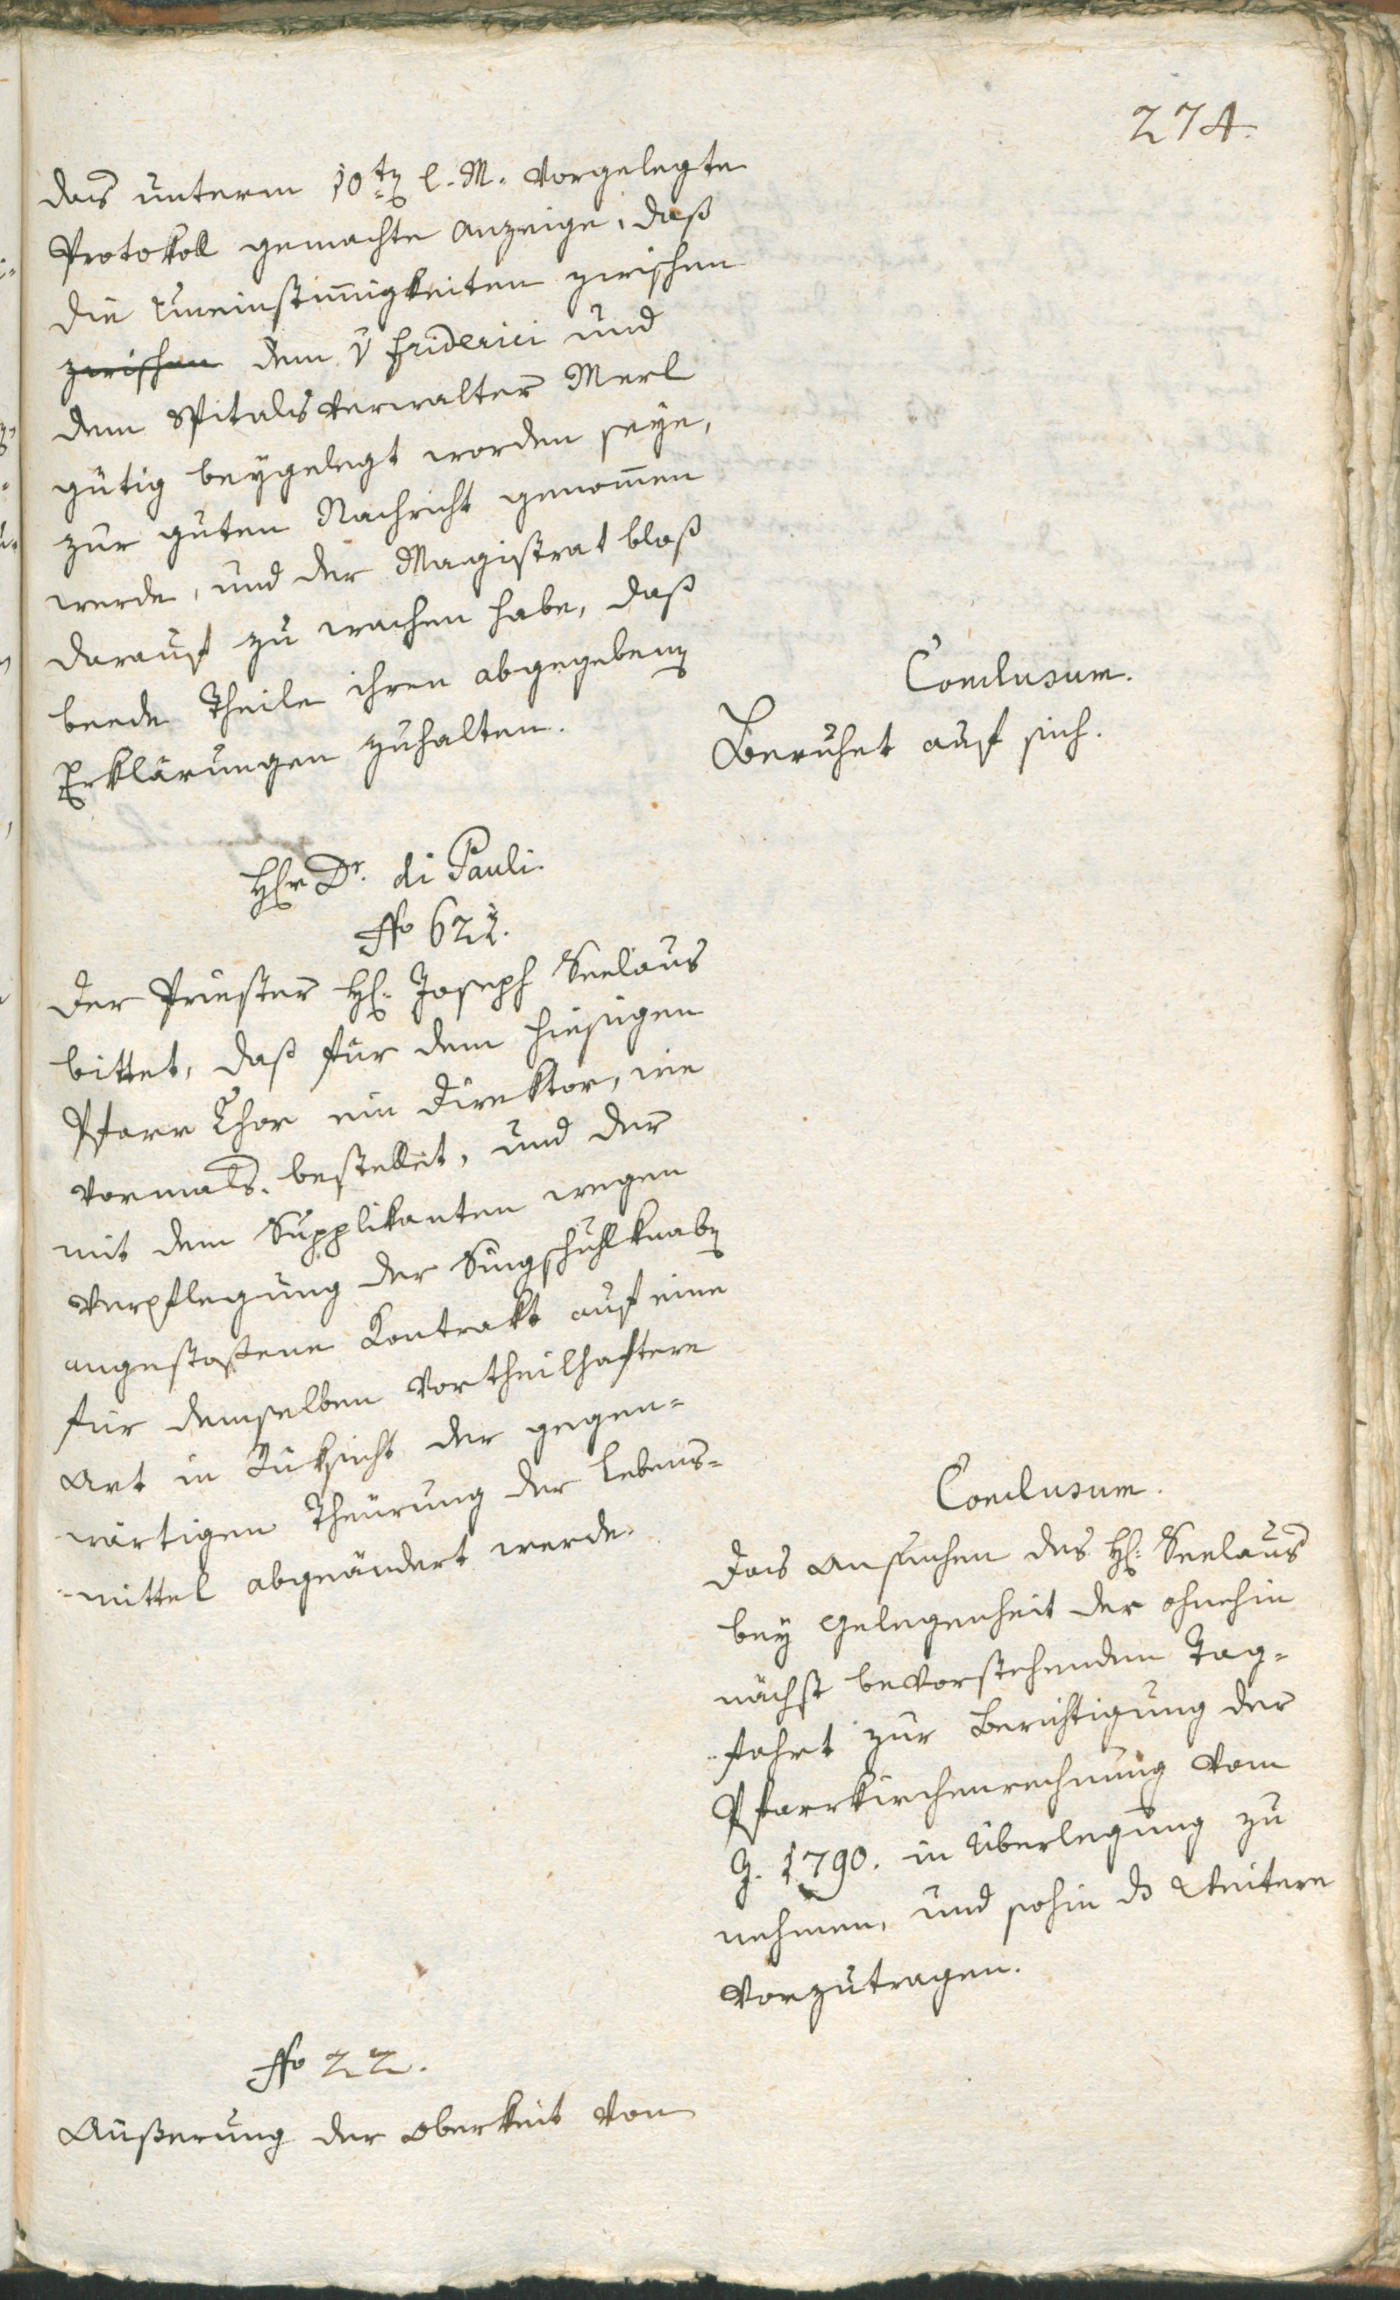 274.
das unterm 10ten l. M. vorgelegte
Protokoll gemachte Anzeige, daß
die Uneinstimigkeiten zwischen
zwischen dem v Friderici und
dem Spitalsverwalter Merl
gütig beygelegt worden seye,
zur guten Nachricht genomen
werde, und der Magistrat bloß
darauf zu wachen habe, daß
beede Theile ihren abgegebenen
Erklärungen zuhalten.
Conclusum.
Beruhet auf sich.
Hr Dr. di Pauli.
No 621.
Der Priester H: Joseph Seelaus
bittet, daß für dem hiesigen
Pfarr Chor ein Direktor, wie
vormals bestellet, und der
mit dem Supplikanten wegen
Verpflegung der Singschuhlknaben
angestoßene Kontrakt auf eine
für demselben vortheilhaftere
Art in Rüksicht der gegen-
wärtigen Theurung der Lebens-
mittel abgeändert werde.
Conclusum.
Das Ansuchen des H: Seelaus
bey Gelegenheit der ohnehin
nächst bevorstehenden Tag-
fahrt zur Berichtigung der
Pfarrkirchenrechnung vom
J. 1790. in Überlegung zu
nehmen, und sohin ds Weitere
vorzutragen.
No 22.
Äußerung der Oberkeit von